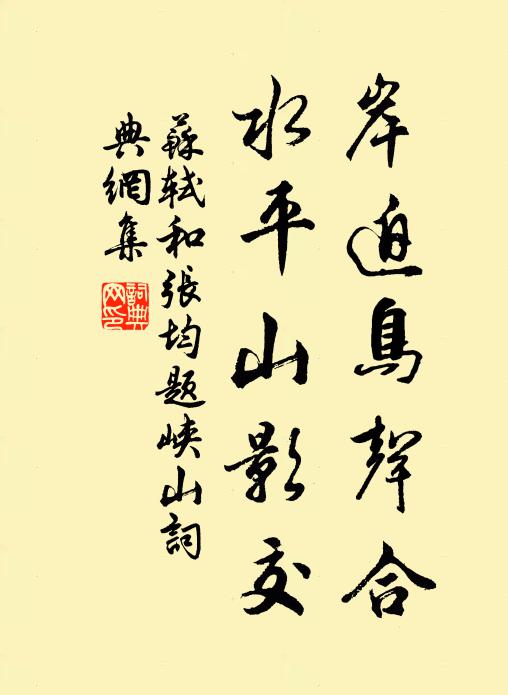 岸迫鳥聲合
水平山影交
蘇軾和張均題峽山詞
典網集
詞典网印